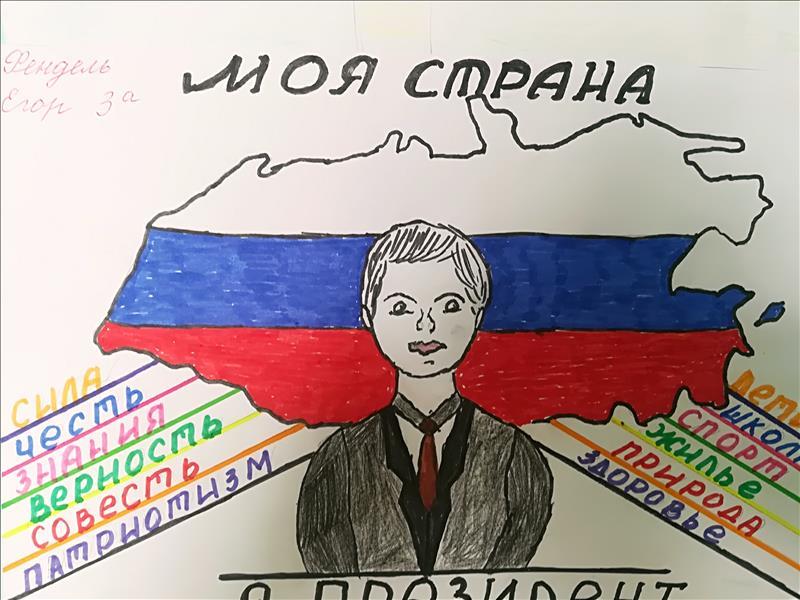 Фендель
Егор 3а
МОЯ СТРАНА
СИЛА
ЧЕСТЬ
ЗНАНИЯ
ВЕРНОСТЬ
СОВЕСТЬ
ПАТРИОТИЗМ
ДЕТИ
ШКОЛЫ
СПОРТ
ЖИЛЬЕ
ПРИРОДА
ЗДОРОВЬЕ
Я ПРЕЗИДЕНТ